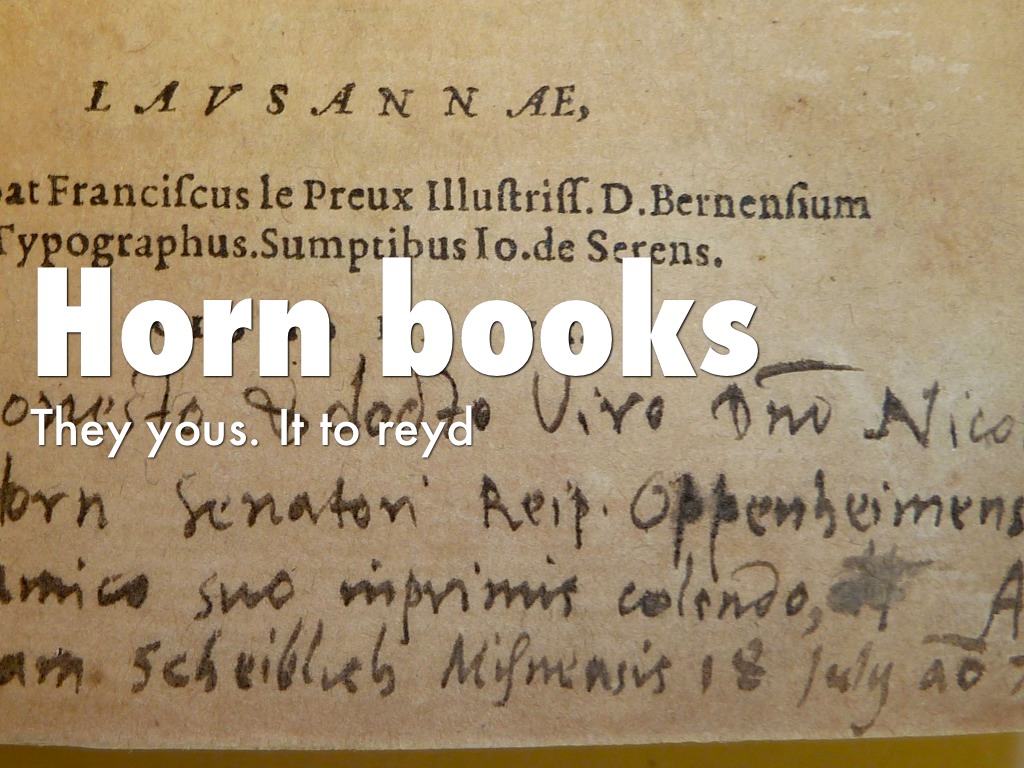 LAVSANNAE,
bat Franciſcus le Preux Illuſtriſſ. D. Bernenſium
Typographus. Sumptibus Io. de Serens.
Horn books
honesto & docto Viro Dno Nico
They yous. It to reyd
Horn Senatori Reip. Oppenheimens
amico suo inprimis colendo,
am Scheiblich Misnensis 18 July ao